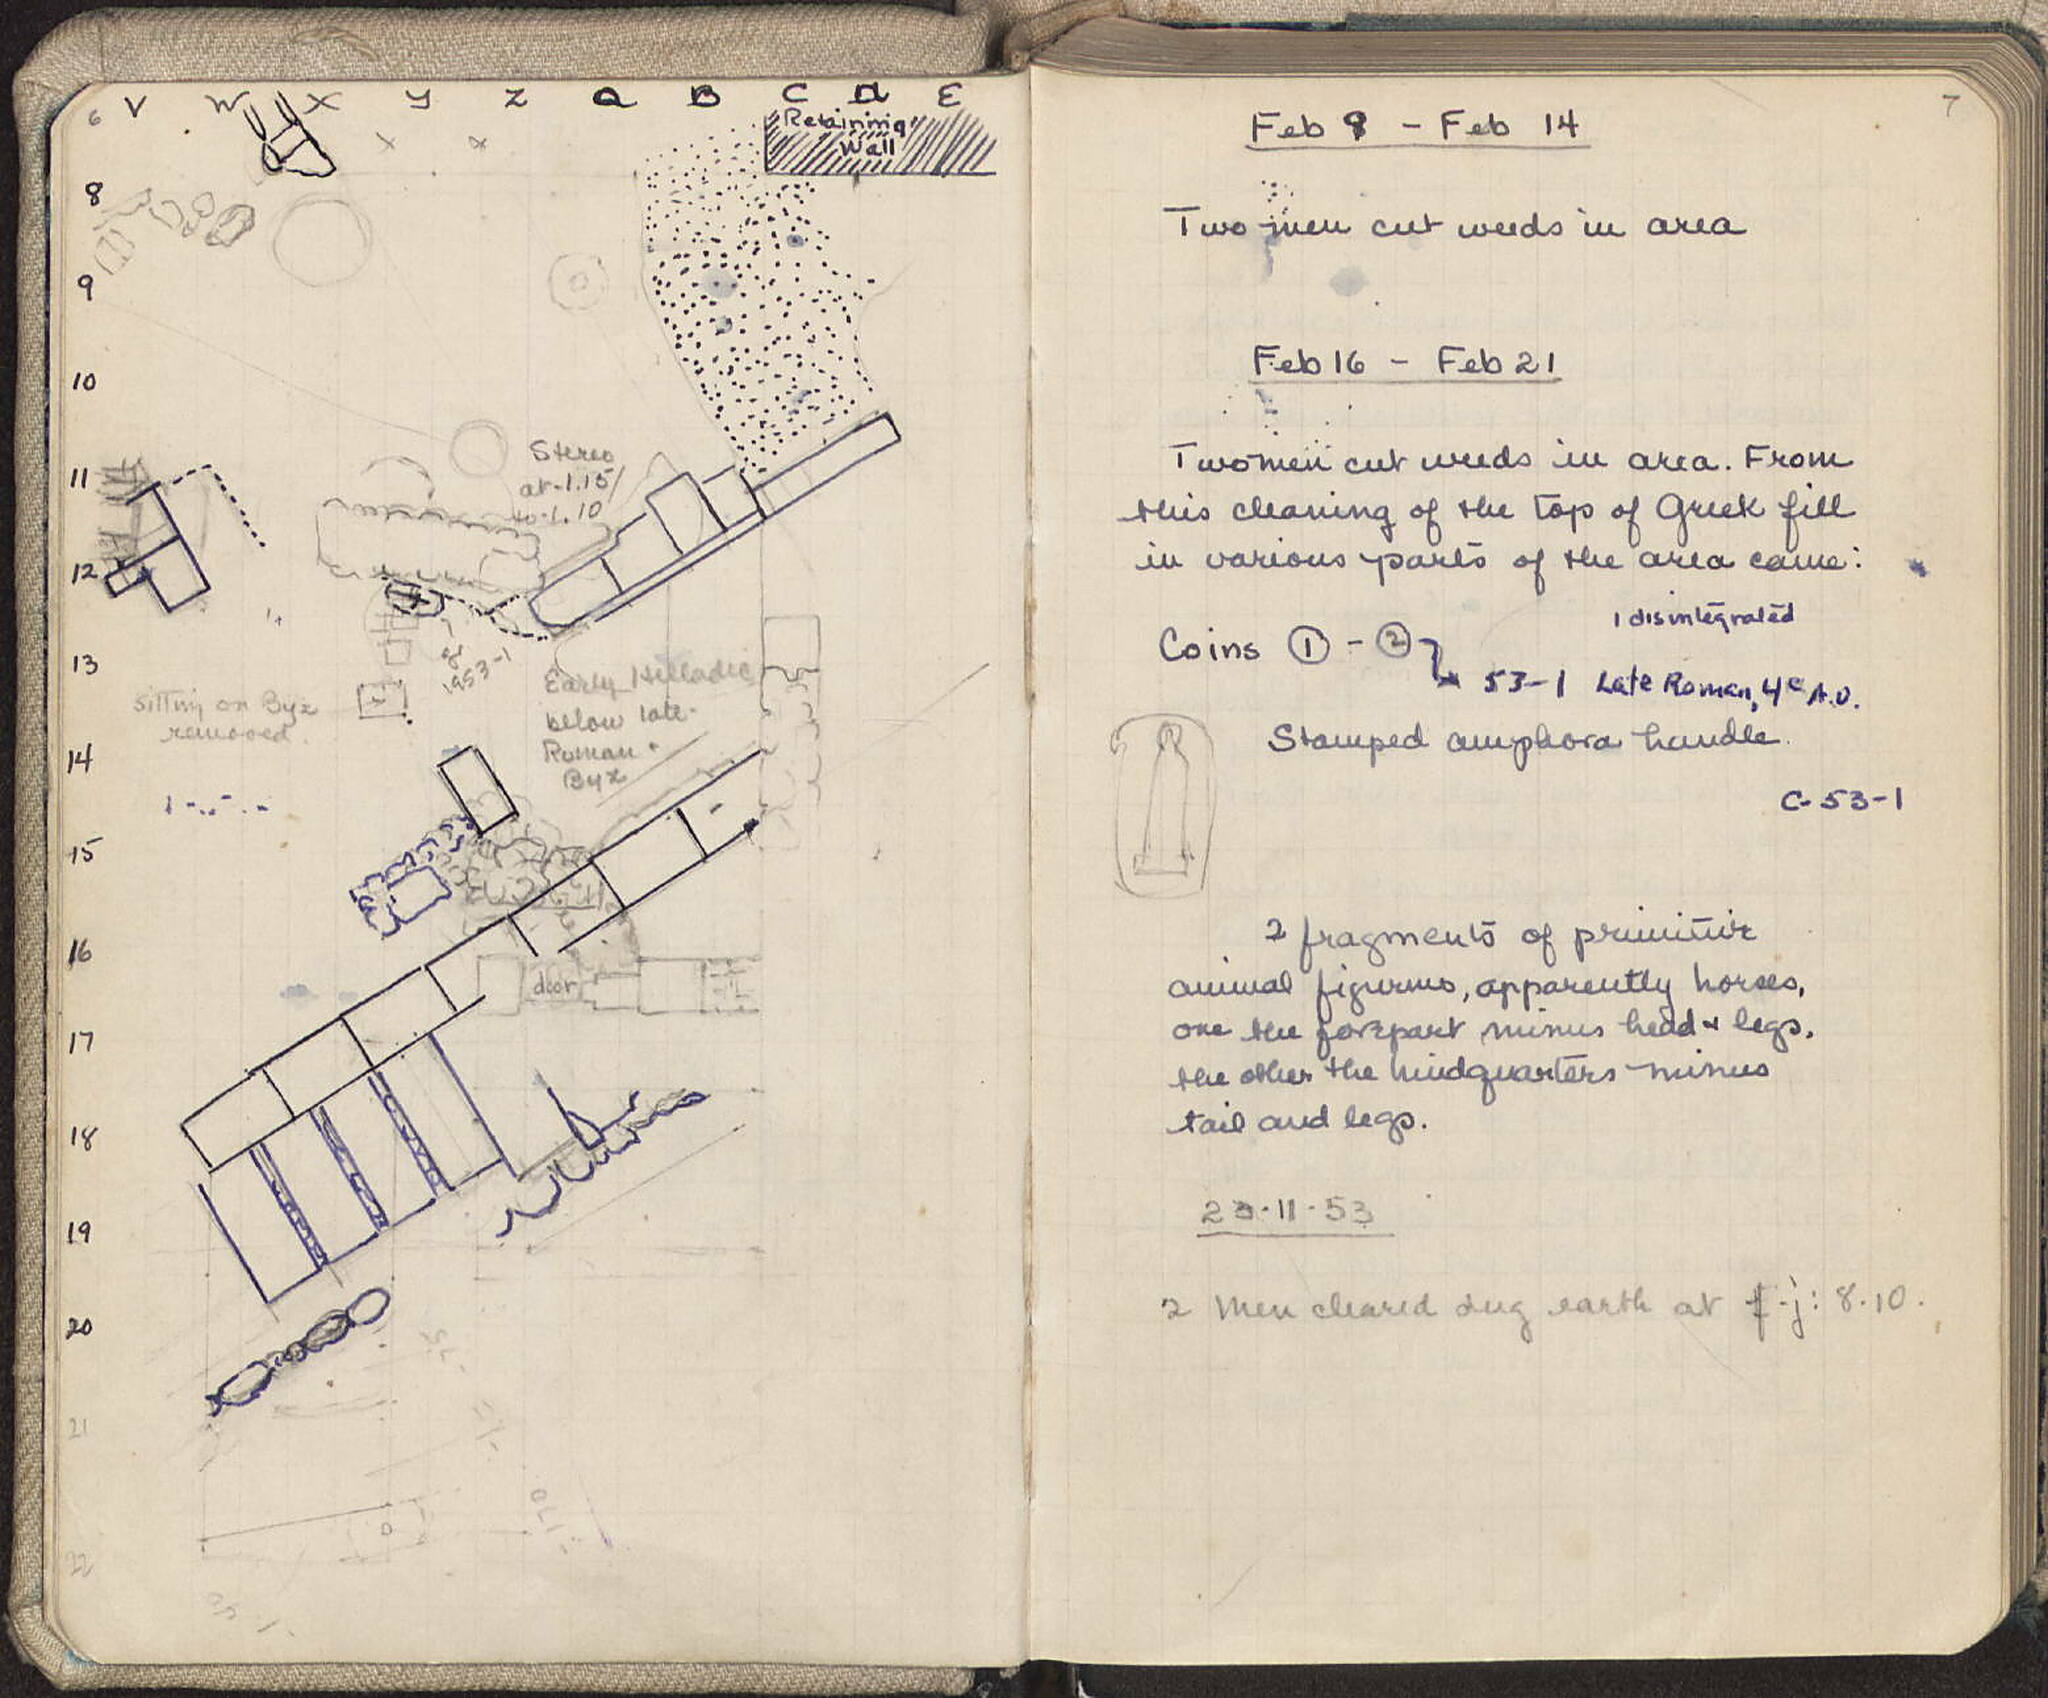 6
V W X Y Z A B C D E
x x
Retaining
Wall
8
9
10
Stereo
at -1.15/
to -1.10
11
12
13
1953-1
Early Helladic
below late
Roman +
Byz
sitting on Byz
removed.
14
15
16
door
17
18
19
20
21
22
7
Feb 9 - Feb 14
Two men cut weeds in area
Feb 16 - Feb 21
Two men cut weeds in area. From
this cleaning of the top of Greek fill
in various parts of the area came:
1 disintegrated
Coins ① - ②
53-1 Late Roman, 4c A.D.
Stamped amphora handle.
C-53-1
2 fragments of primitive
animal figurines, apparently horses,
one the forepart minus head & legs,
the other the hindquarters minus
tail and legs.
23·II·53
2 men cleared dug earth at f-j: 8-10.